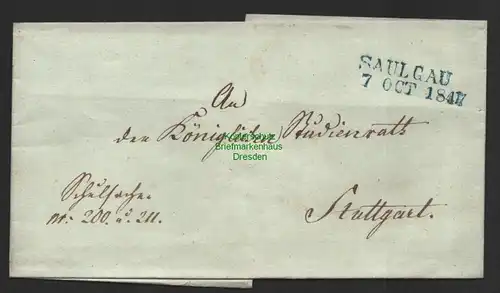 SAULGAU
7 OCT 1847
An
den Königlichen Studienrath
Briefmarkenhaus
Dresden
Schulsache.
nr: 200. u. 211.
Stuttgart.